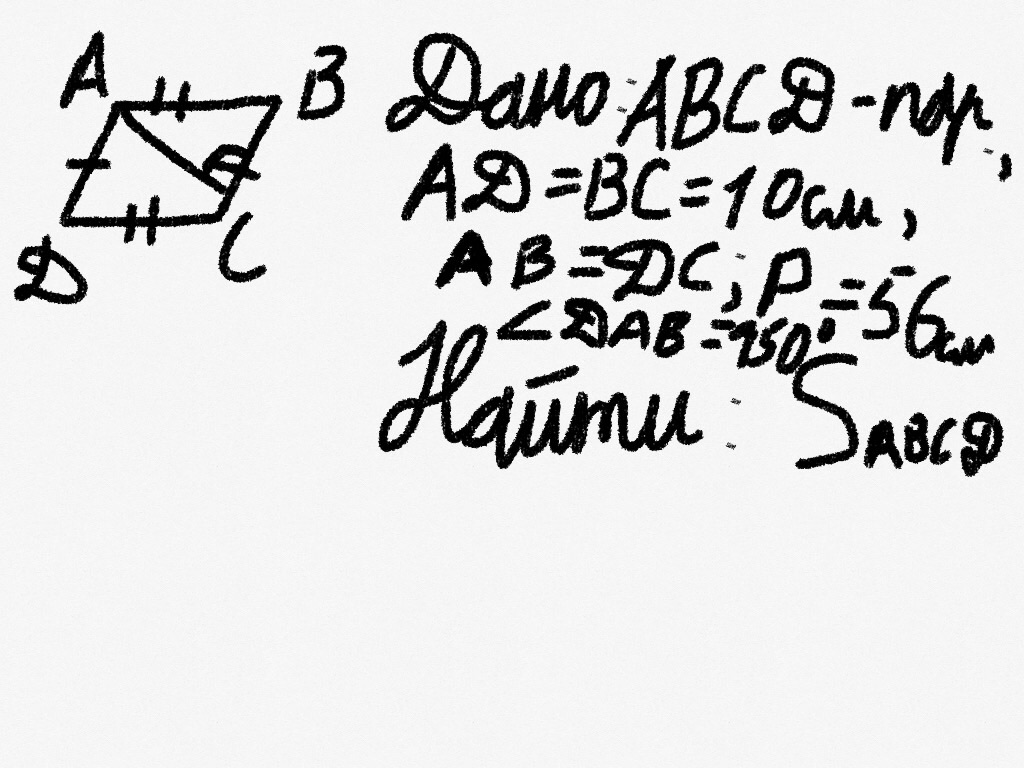 A
B
D
C
Дано: ABCD - пдр,
AD = BC = 10см,
AB = DC; P = 56см
∠DAB = 150°
Найти: S ABCD